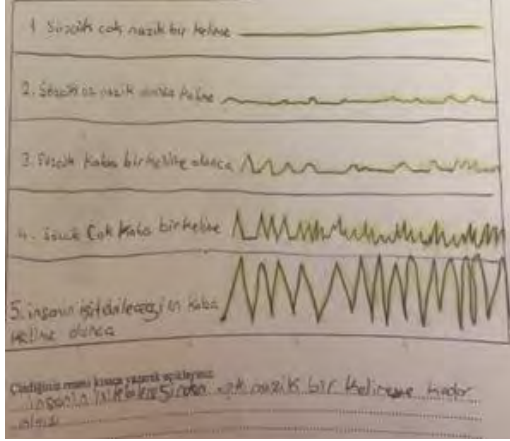 1. Sözcük çok nazik bir kelime
2. Sözcük az nazik olunca kelime
3. Sözcük kaba bir kelime olunca
4. Sözcük Çok kaba bir kelime
5. insanın işitebileceği en kaba
kelime olunca
Çizdiğiniz resmi kısaca yazarak açıklayınız
çok nazik bir kelimeye kadar